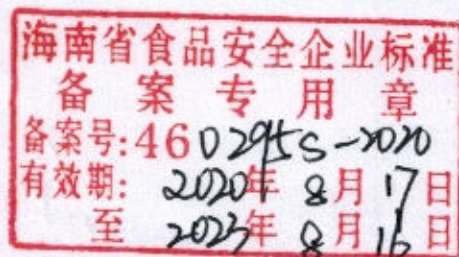 海南省食品安全企业标准
备案专用章
备案号:460295S-2020
有效期: 2020年 8月 17日
至 2023年 8月 16日